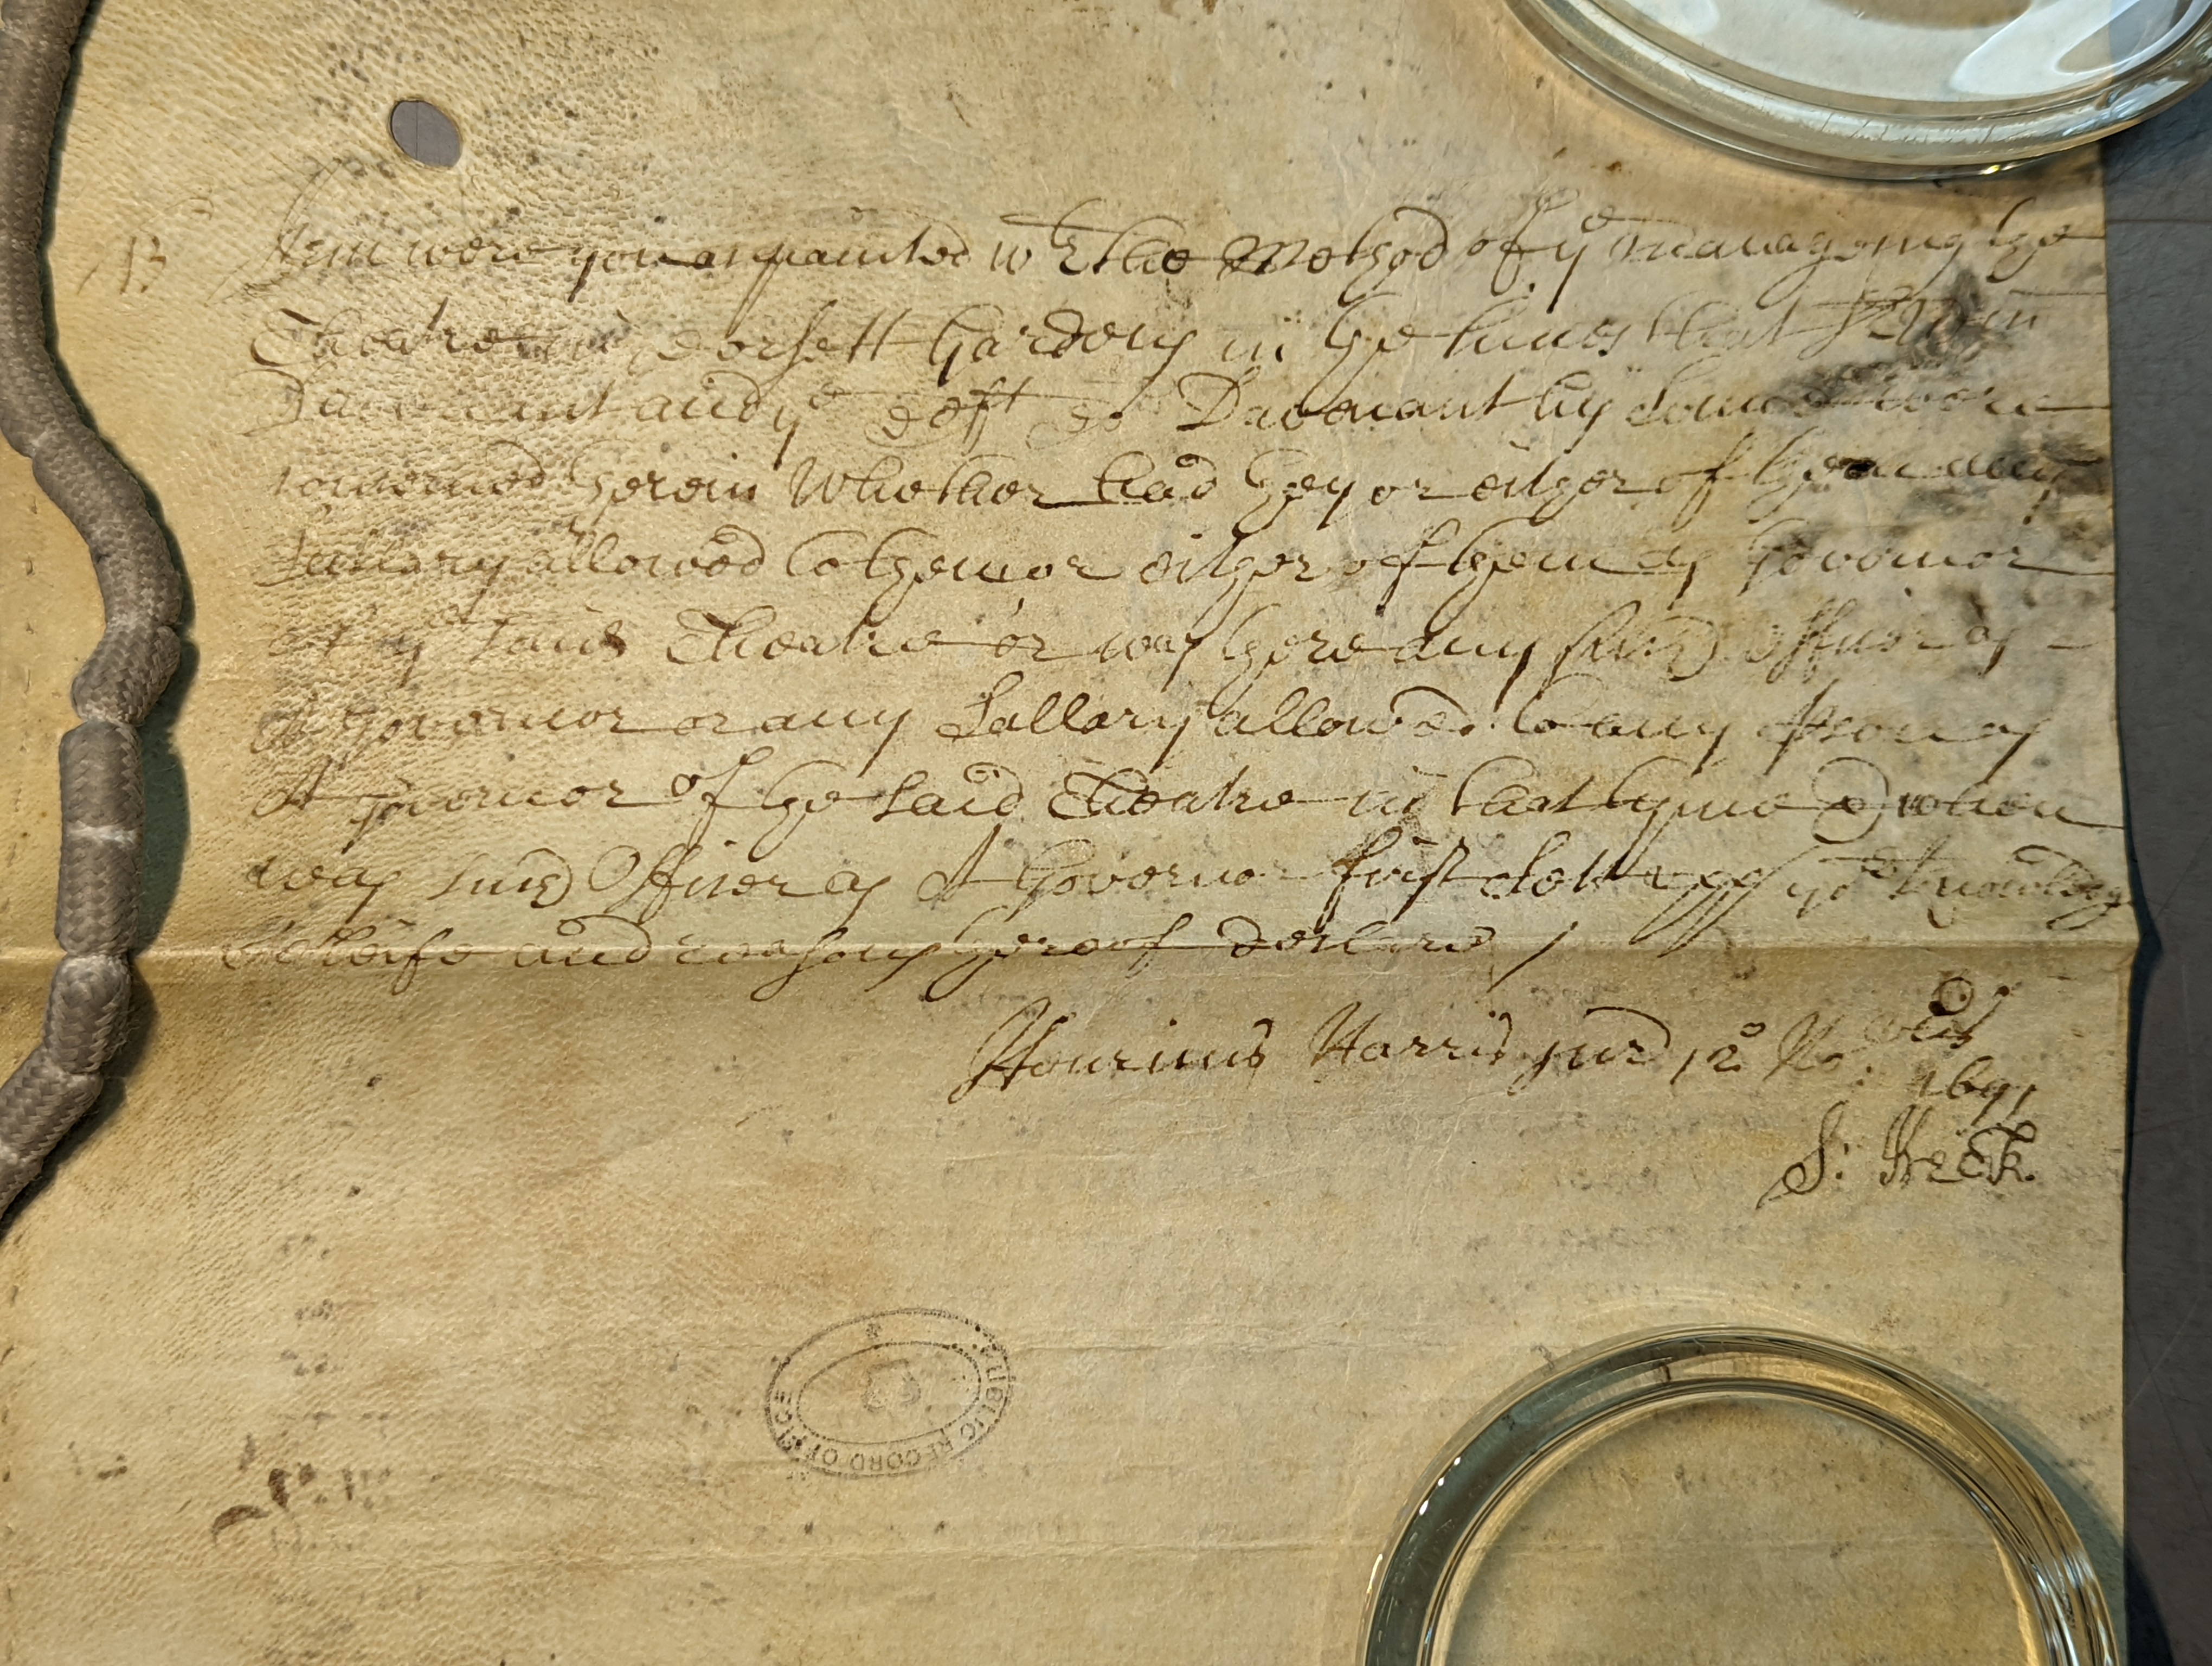 13 Item were you acquainted wth the Method of ye managemg the
Theatre in Dorsett Gardens in the times that Sr Wm
Davenant and ye deft Dr Davenant his Sonne were
concerned therein Whether had they or either of them any
Sallary allowed to them or either of them as Governor
of ye said Theatre or was there any such Officer as
A Governor or any Sallary allowed to any pson as
A Governor of the said Theatre in that tyme & when
was such Officer as A Governor first sett upp yor knowledge
beleife and reasons thereof declare /
Henricus Harris jurd 12o No: vris
1691
S: Keck.
PUBLIC RECORD OFFICE